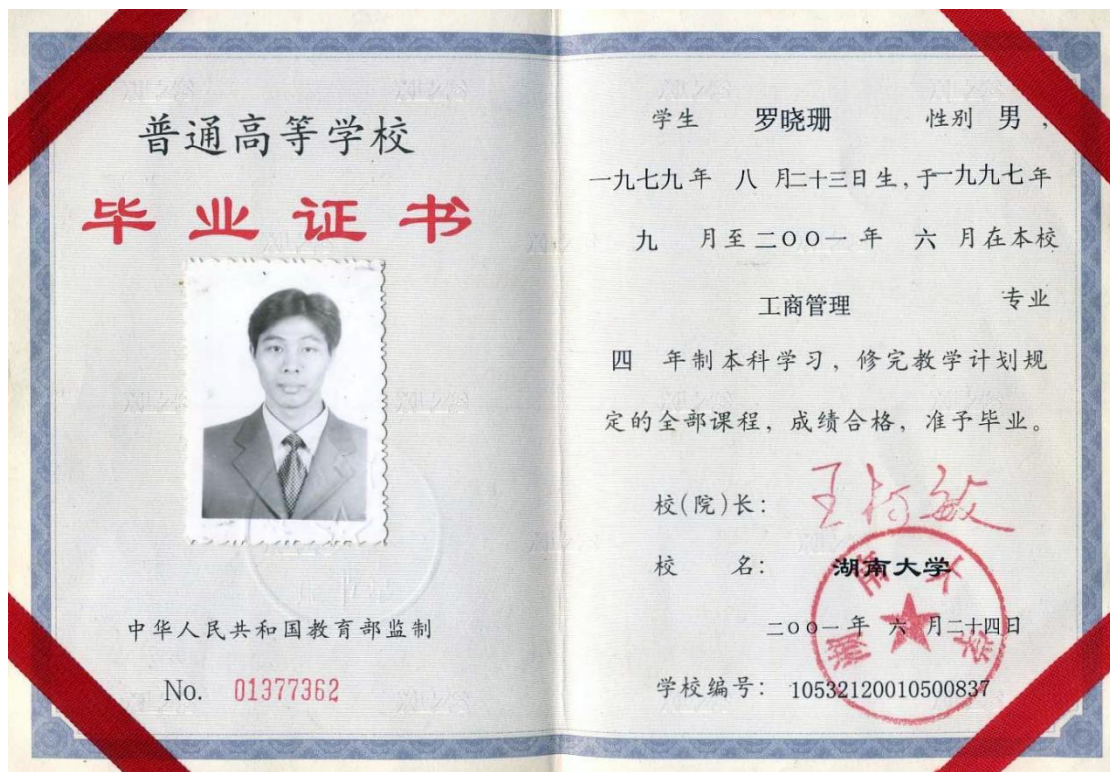 普通高等学校
毕业证书
中华人民共和国教育部监制
No. 01377362
学生 罗晓珊 性别 男,
一九七九年 八 月二十三日生,于一九九七年
九 月至二〇〇一年 六 月在本校
工商管理 专业
四 年制本科学习,修完教学计划规
定的全部课程,成绩合格,准予毕业。
校(院)长: 王柯敏
校 名: 湖南大学
二〇〇一年 六 月二十四日
学校编号: 10532120010500837
湖南大学